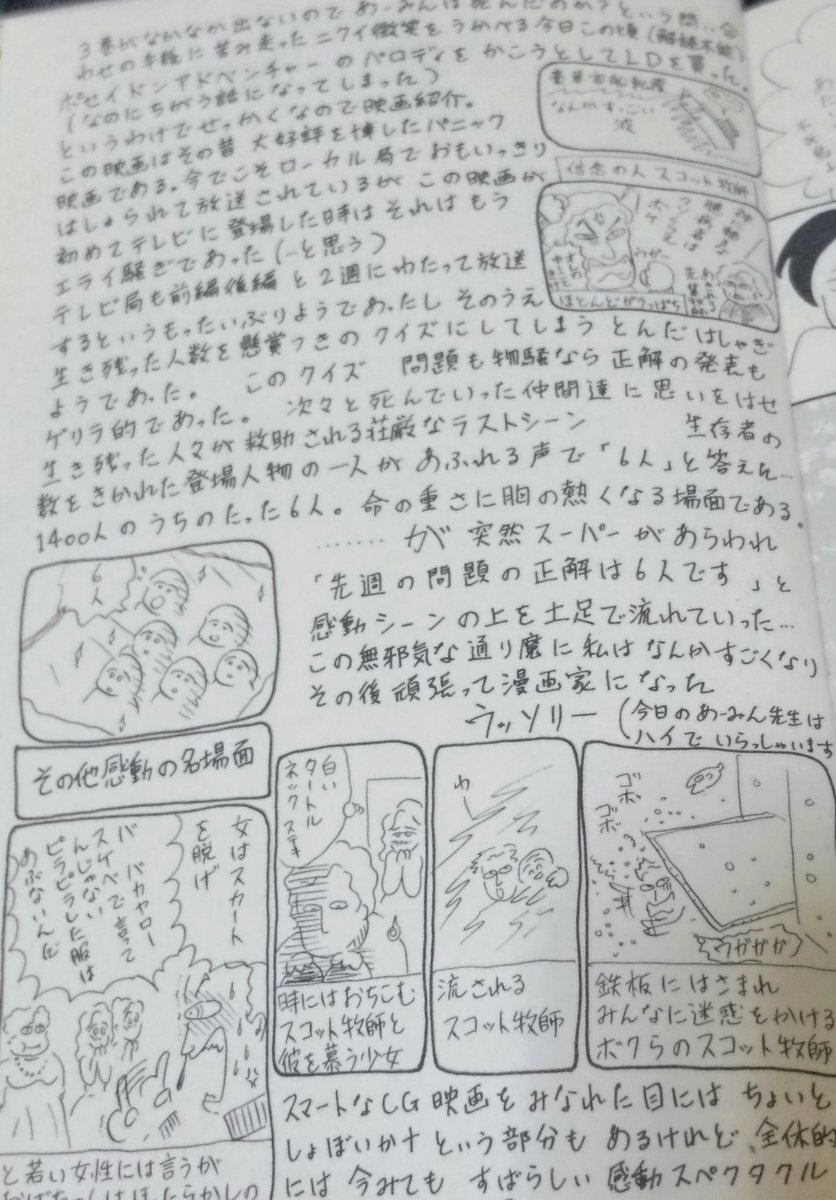 3巻がなかなか出ないので あーみんは死んだのか?という問い合
わせの手紙に苦み走ったニクイ微笑をうかべる今日この頃(解読不能)
ポセイドンアドベンチャーのパロディをかこうとしてLDを買った。
(なのにちがう話になってしまった)
というわけでせっかくなので映画紹介。
この映画はその昔 大好評を博したパニック
映画である。今でこそローカル局でおもいっきり
はしょられて放送されているが この映画が
初めてテレビに登場した時は それはもう
エライ騒ぎであった(…と思う)
テレビ局も前編後編と2週にわたって放送
するというもったいぶりようであったし そのうえ
生き残った人数を懸賞つきのクイズにしてしまう とんだはしゃぎ
ようであった。 このクイズ 問題も物騒なら 正解の発表も
ゲリラ的であった。 次々と死んでいった仲間達に思いをはせ
生き残った人々が救助される荘厳なラストシーン 生存者の
数をきかれた登場人物の一人が あふれる声で「6人」と答えた…
1400人のうちのたった6人。命の重さに胸の熱くなる場面である。
……が 突然スーパーがあらわれ
「先週の問題の正解は6人です」と
感動シーンの上を土足で流れていった…
この無邪気な通り魔に私はなんかすごくなり
その後頑張って漫画家になった
ウッソリー(今日のあーみん先生は
ハイでいらっしゃいます
豪華客船転覆
なんかすっごい
波
信念の人 スコット牧師
神は
臆病者は
ボケ
ほとんどガラっぱち
6人
その他感動の名場面
女はスカート
を脱げ
バーバカヤロー
スケベで言って
んじゃない
ピラピラした服は
あぶないんだ
と若い女性には言うが
白い
タートル
ネックステキ
時にはおちこむ
スコット牧師と
彼を慕う少女
わー
流される
スコット牧師
ゴボ
ゴボ
ウガガガ
鉄板にはさまれ
みんなに迷惑をかける
ボクらのスコット牧師
スマートなCG映画をみなれた目には ちょいと
しょぼいかナという部分も あるけれど、全体的
には今みても すばらしい 感動スペクタクル